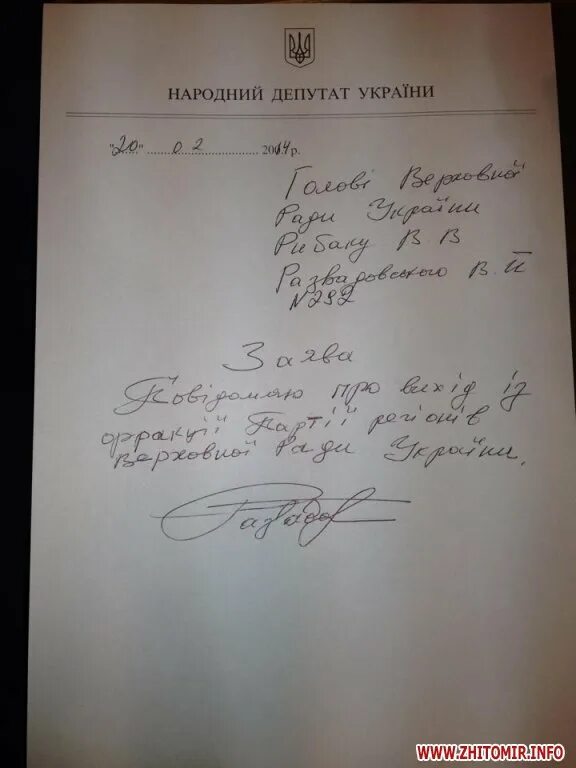 НАРОДНИЙ ДЕПУТАТ УКРАЇНИ
"20" 02 2014 р.
Голові Верховної
Ради України
Рибаку В. В
Развадовского В. Й
№292
Заява
Повідомляю про вихід із
фракції Партії регіонів
Верховної Ради України.
Развадов
WWW.ZHITOMIR.INFO